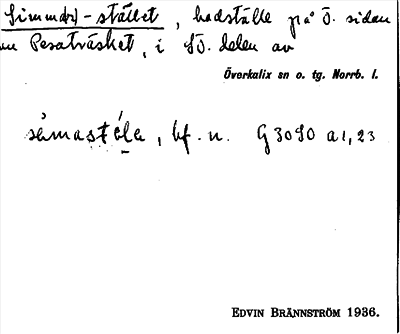 Simmar)-stället, badställe på ö. sidan
om Pesaträsket, i SÖ. delen av
Överkalix sn o. tg. Norrb. l.
sìmastéla, bf. n. G 3090 a1, 23
EDVIN BRÄNNSTRÖM 1936.